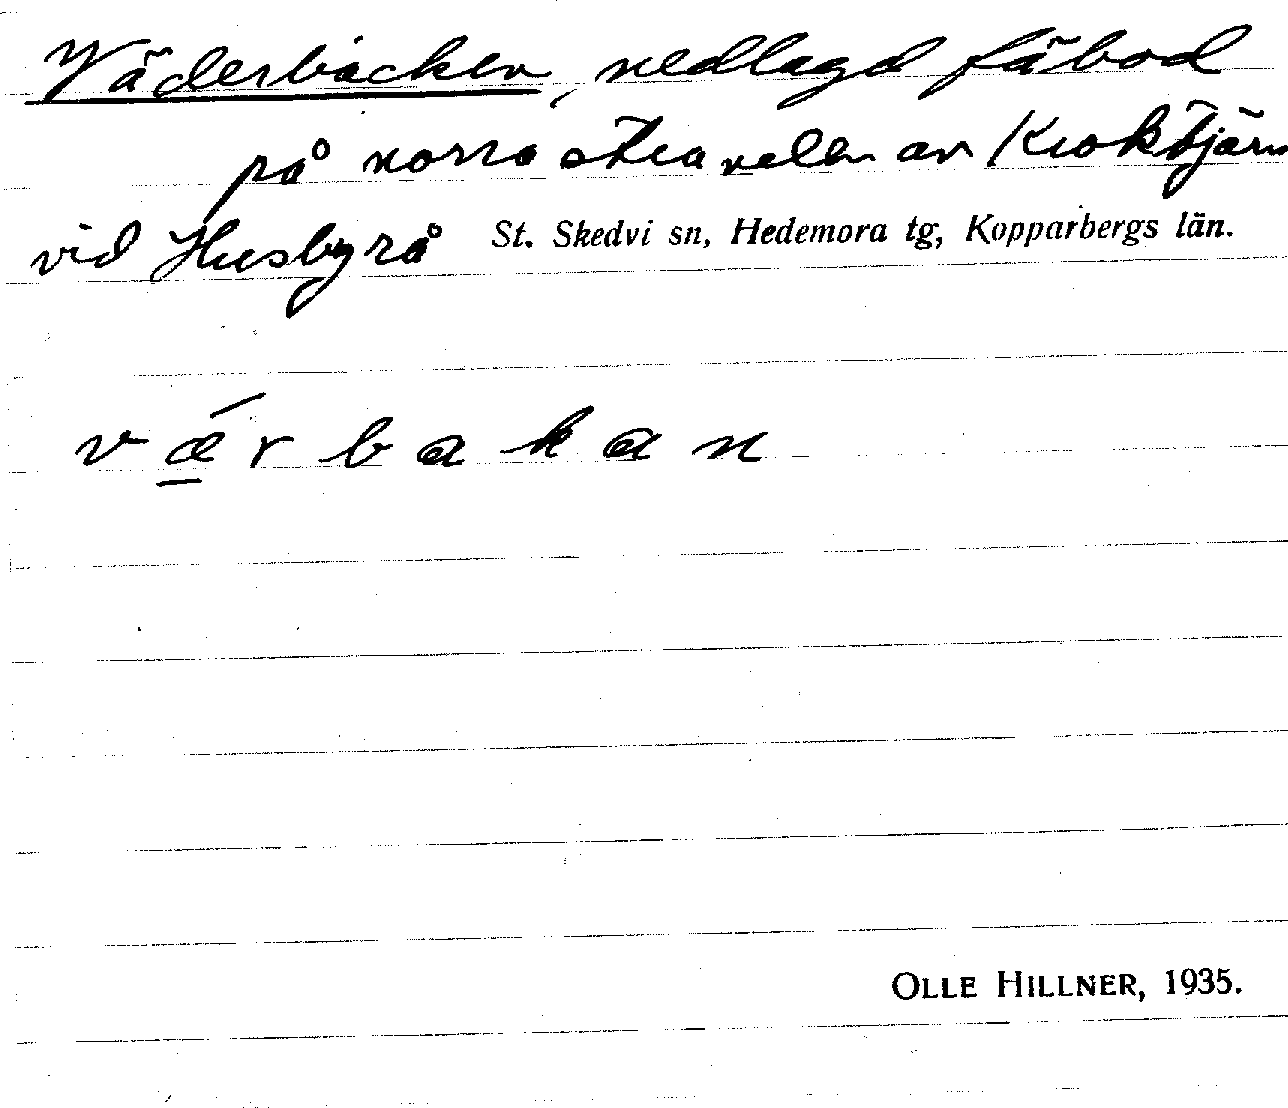 Väderbacken, nedlagd fäbod
på norra stranden av Kroktjärn
vid Husbyrå St. Skedvi sn, Hedemora tg, Kopparbergs län.
vǽ̲rbakan
OLLE HILLNER, 1935.